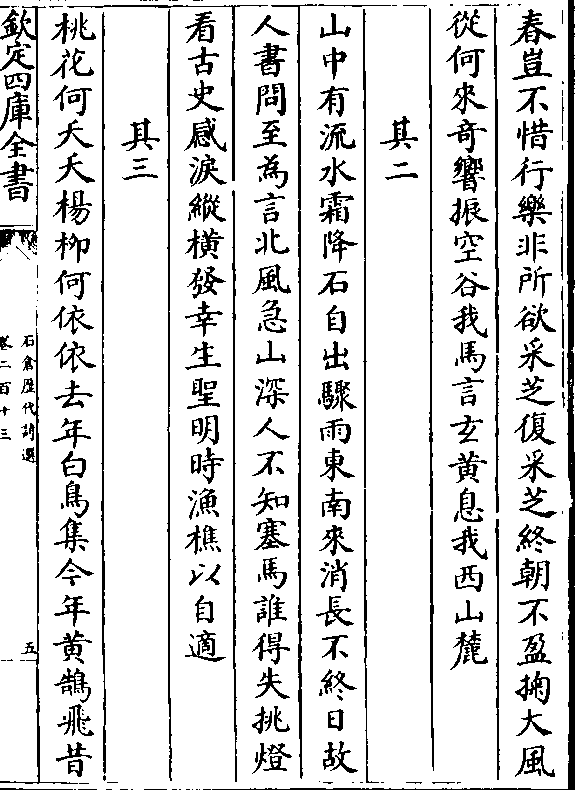 春豈不惜行樂非所欲采芝復采芝終朝不盈掬大風
從何來奇響振空谷我馬言玄黄息我西山麓
其二
山中有流水霜降石自出驟雨東南來消長不終日故
人書問至為言北風急山深人不知塞馬誰得失挑燈
看古史感淚縱橫發幸生聖明時漁樵以自適
其三
桃花何夭夭楊柳何依依去年白鳥集今年黄鵠飛昔
欽定四庫全書
石倉歷代詩選
卷二百十三
五